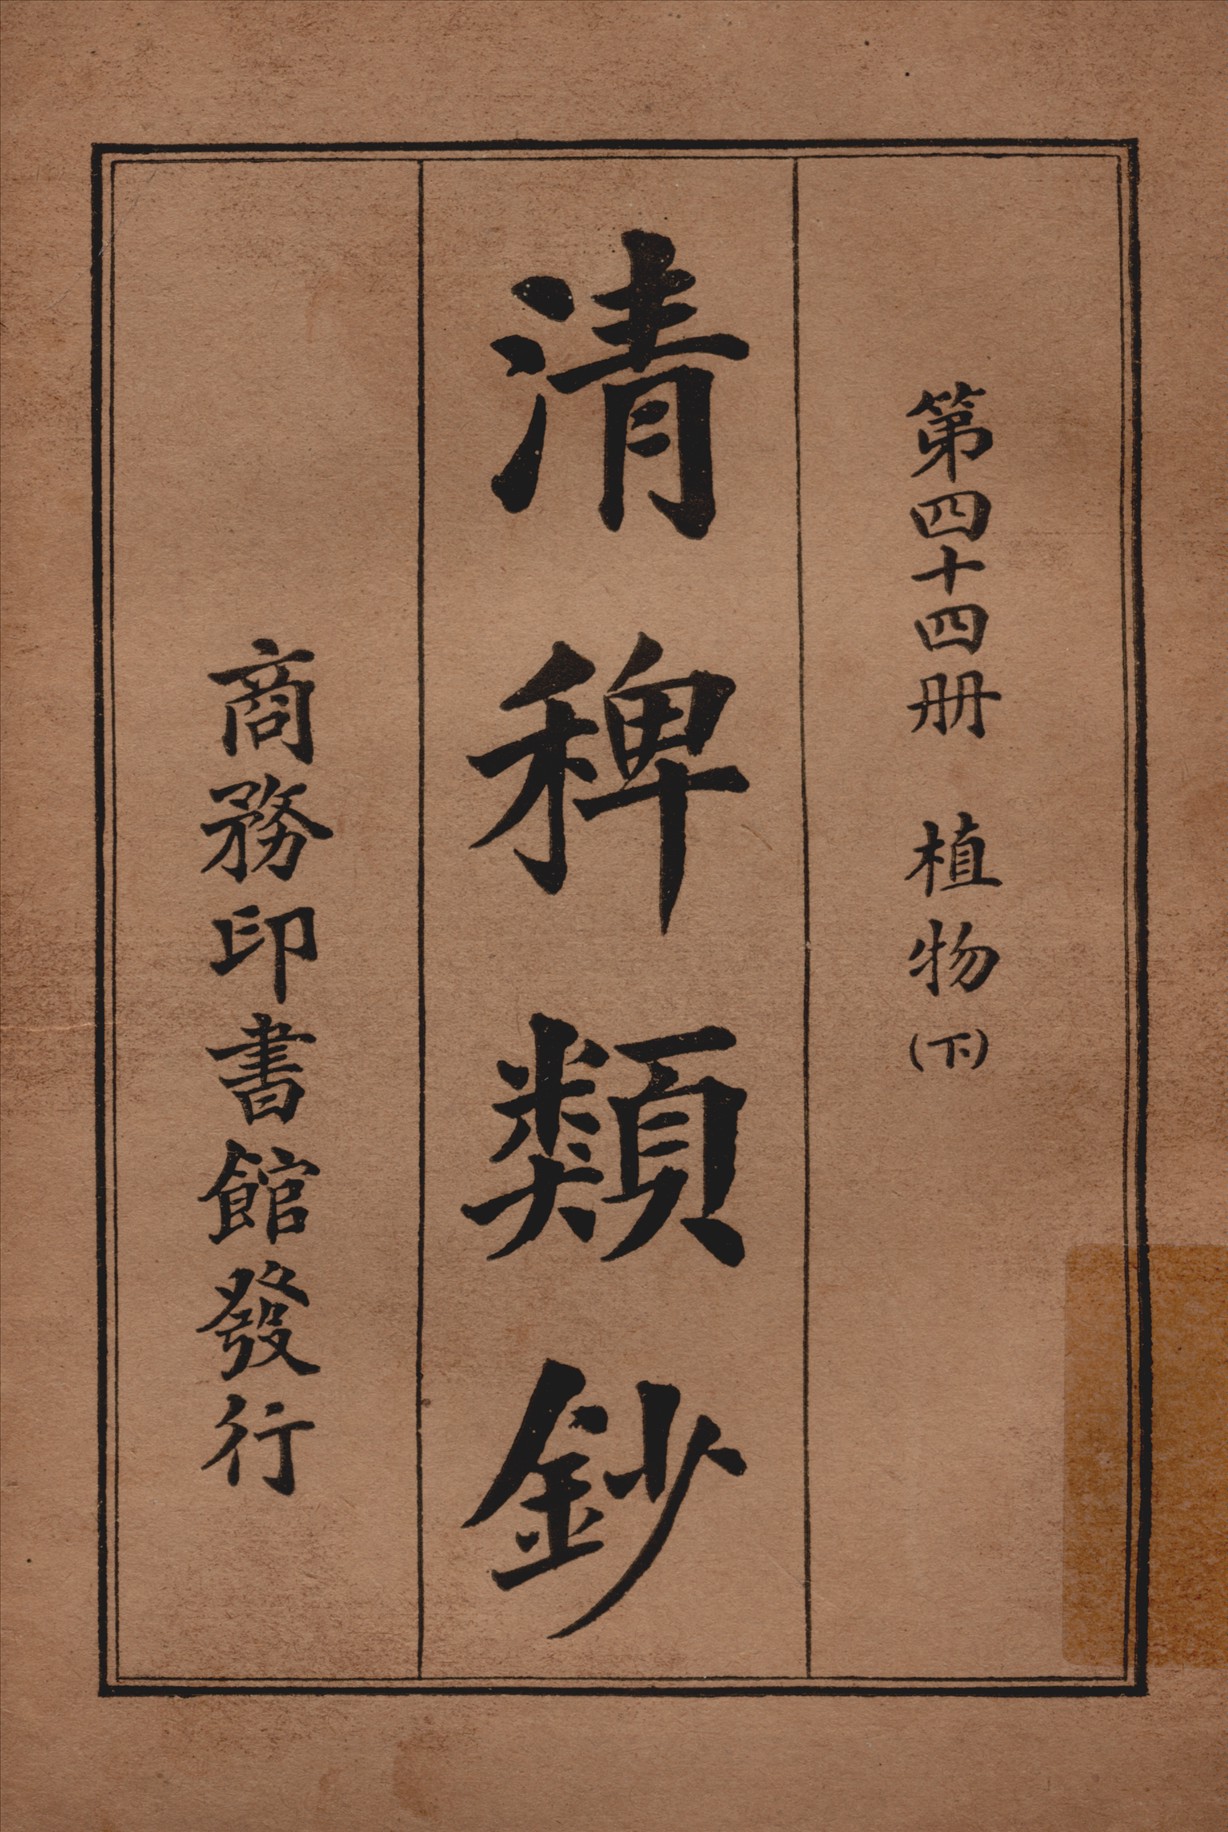 第四十四册 植物(下)
清稗類鈔
商務印書館發行